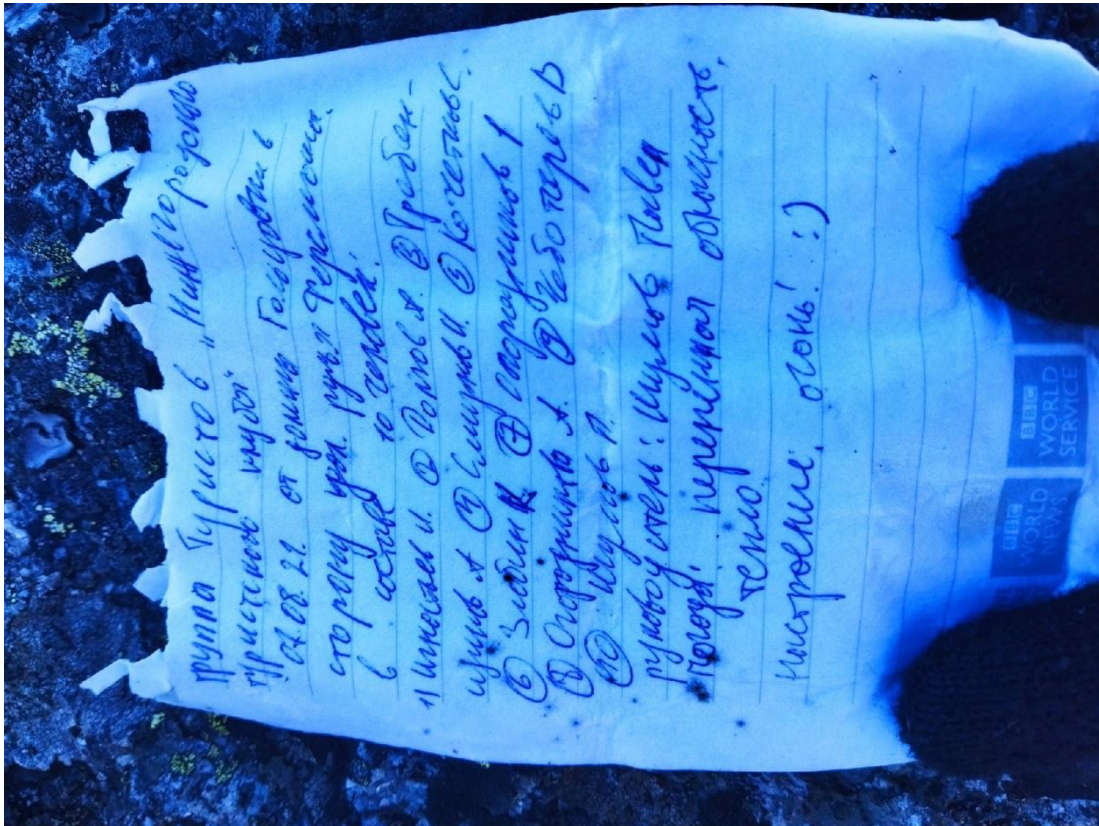 Группа Туристов "Нижегородский
туристский клуб"
07.08.21. от долины Гольцовки в
сторону ущ. ручья Ферсмана.
в составе 10 человек:
1) Игнатьев И. ② Долгов А. ③ Гребен-
щиков А ④ Смирнов И. ⑤ Кочетков С.
⑥ Злобин К. ⑦ Господчиков
⑧ Огородников А. ⑨ Чеботарев В
⑩ Шумов П.
руководитель: Шумов Павел
погода: переменная облачность,
тепло!
Настроение, огонь! :)
BBC
WORLD
NEWS
BBC
WORLD
SERVICE